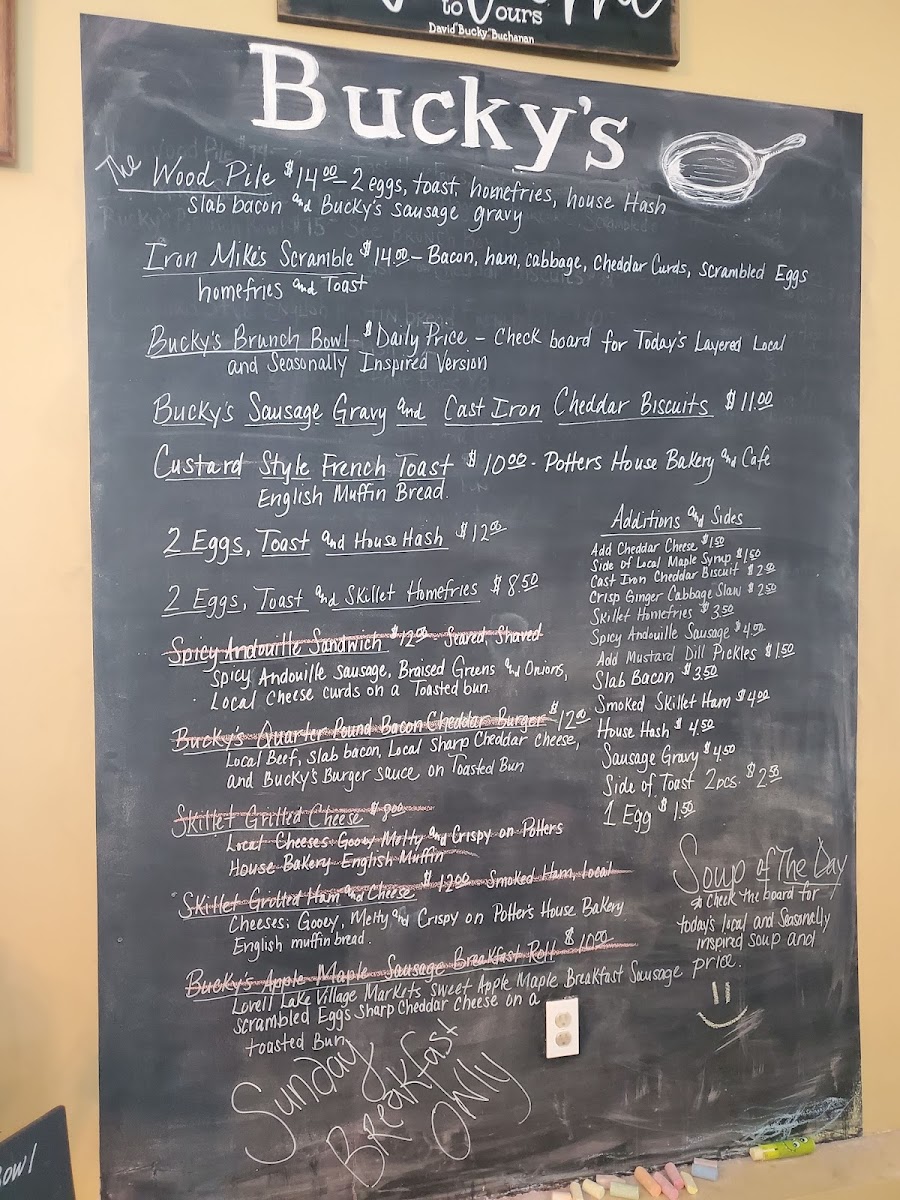 to Yours
David "Bucky" Buchanan
Bucky's
The Wood Pile $14.00 - 2 eggs, toast, homefries, house Hash
slab bacon and Bucky's sausage gravy
Iron Mike's Scramble $14.00 - Bacon, ham, cabbage, Cheddar Curds, scrambled Eggs
homefries and Toast
Bucky's Brunch Bowl $Daily Price - Check board for Today's Layered Local
and Seasonally Inspired Version
Bucky's Sausage Gravy and Cast Iron Cheddar Biscuits $11.00
Custard Style French Toast $10.00 - Potters House Bakery and Cafe
English Muffin Bread.
2 Eggs, Toast and House Hash $12.00
2 Eggs, Toast and Skillet Homefries $8.50
Spicy Andouille Sandwich $12.00 - Seared, Shaved
Spicy Andouille Sausage, Braised Greens and Onions,
Local Cheese curds on a Toasted bun.
Bucky's Quarter Pound Bacon Cheddar Burger $12.00
Local Beef, slab bacon, Local sharp Cheddar cheese,
and Bucky's Burger sauce on Toasted Bun
Skillet Grilled Cheese $8.00
Local Cheeses: Gooey Melty and Crispy on Potters
House Bakery English Muffin
Skillet Grilled Ham and Cheese. $12.00 Smoked Ham, Local
Cheeses; Gooey, Melty and Crispy on Potter's House Bakery
English muffin bread.
Bucky's Apple Maple Sausage Breakfast Roll $10.00
Lovell Lake Village Markets sweet Apple Maple Breakfast Sausage
scrambled Eggs Sharp Cheddar cheese on a
toasted Bun
Sunday
Breakfast
Only
Additions and Sides
Add Cheddar Cheese $1.50
Side of Local Maple Syrup $1.50
Cast Iron Cheddar Biscuit $2.00
Crisp Ginger Cabbage Slaw $2.50
Skillet Homefries $3.50
Spicy Andouille Sausage $4.00
Add Mustard Dill Pickles $1.50
Slab Bacon $3.50
Smoked Skillet Ham $4.00
House Hash $4.50
Sausage Gravy $4.50
Side of Toast 2pcs. $2.50
1 Egg $1.50
Soup of The Day
Check the board for
today's local and Seasonally
inspired soup and
price.
Bowl